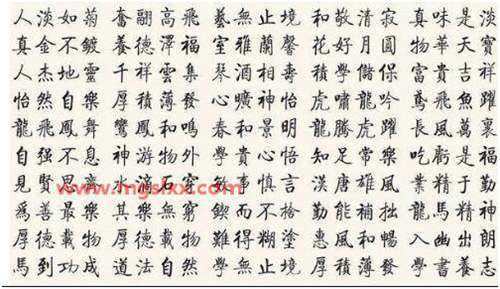 人淡如菊 奮翮高飛 藝無止境 和敬清寂 真味是淡
真金不鍍 養德澤福 室雅蘭馨 花好月圓 物華天寶
人杰地靈 千祥雲集 琴酒相壽 學儲 富貴吉祥
怡然自樂 厚積薄發 曠神怡 虎嘯龍吟 鳶飛魚躍
龍飛鳳舞 鸞鳳和鳴 春和景明 龍騰虎躍 長風萬裏
自强不息 神游物外 學貴心悟 知足常樂 吃虧是福
見賢思齊 水滴石穿 敏事慎言 漢唐雄風 業精于勤
www.mgslxx.com
爲善最樂 其樂無窮 鍥而不捨 勤能補拙 龍馬精神
厚德載物 厚德載物 難得糊塗 惠風和暢 入幽出朗
馬到功成 道法自然 學無止境 厚積薄發 學書養志